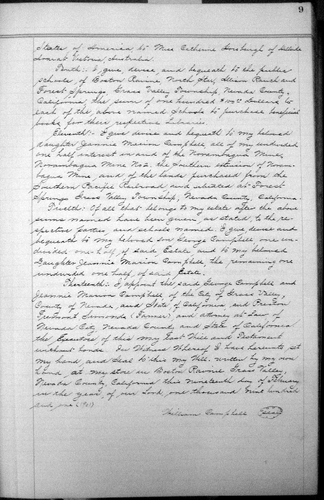 9
States of America to Miss Catherine Horsburgh of
Victoria Australia.
Tenth:- I give, devise and bequeath to the public
schools of Boston Ravine, North Star, Allison Ranch and
Forest Springs, Grass Valley Township, Nevada County,
California, the sum of one hundred dollars to
each of the above named schools to purchase beneficial
books for their respective Libraries.
Eleventh:- I give devise and bequeath to my beloved
daughter Jeannie Marion Campbell, all of my undivided
one half interest in and of the Norambagua Mine,
Norambagua Mine No 2, the Southern extension of Noram-
bagua Mine, and of the lands purchased from the
Southern Pacific Railroad and situated at Forest
Springs Grass Valley Township, Nevada County, California.
Twelfth:- Of all that belongs to my estate after the above
sums named have been given as stated to the re-
spective parties, and schools named, I give devise and
bequeath to my beloved son George Campbell one un-
divided one-half of said Estate and to my beloved
Daughter Jeannie Marion Campbell the remaining one
undivided one half, of said Estate.
Thirteenth:- I appoint the said George Campbell and
Jeannie Marion Campbell of the City of Grass Valley,
County of Nevada, and State of California and
Simonds (Farmer) and attorney at Law of
Nevada City Nevada County and State of California
the Executors of this my last Will and Testament
without bonds. In Witness Whereof I have hereunto set
my hand and seal to this my Will, written by my own
hand, at my store in Boston Ravine Grass Valley,
Nevada County, California this nineteenth day of February
in the year of our Lord one thousand nine hundred
and one (1901)
William Campbell (Seal)